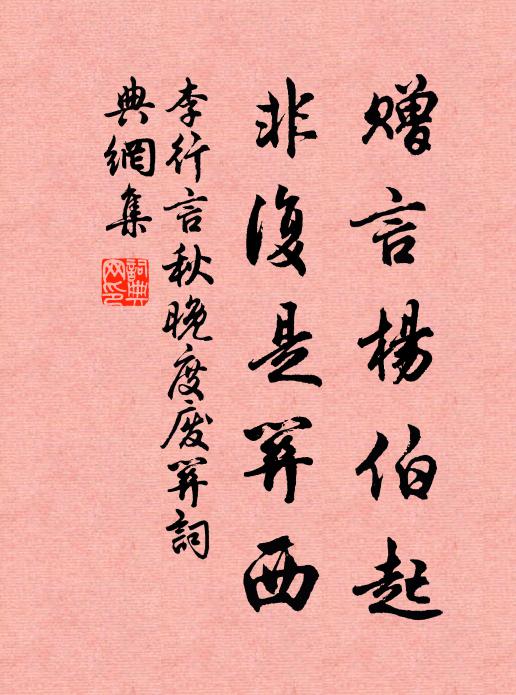 贈言楊伯起
非復是關西
李行言秋晚度廢關詞
典網集
詞典
网印